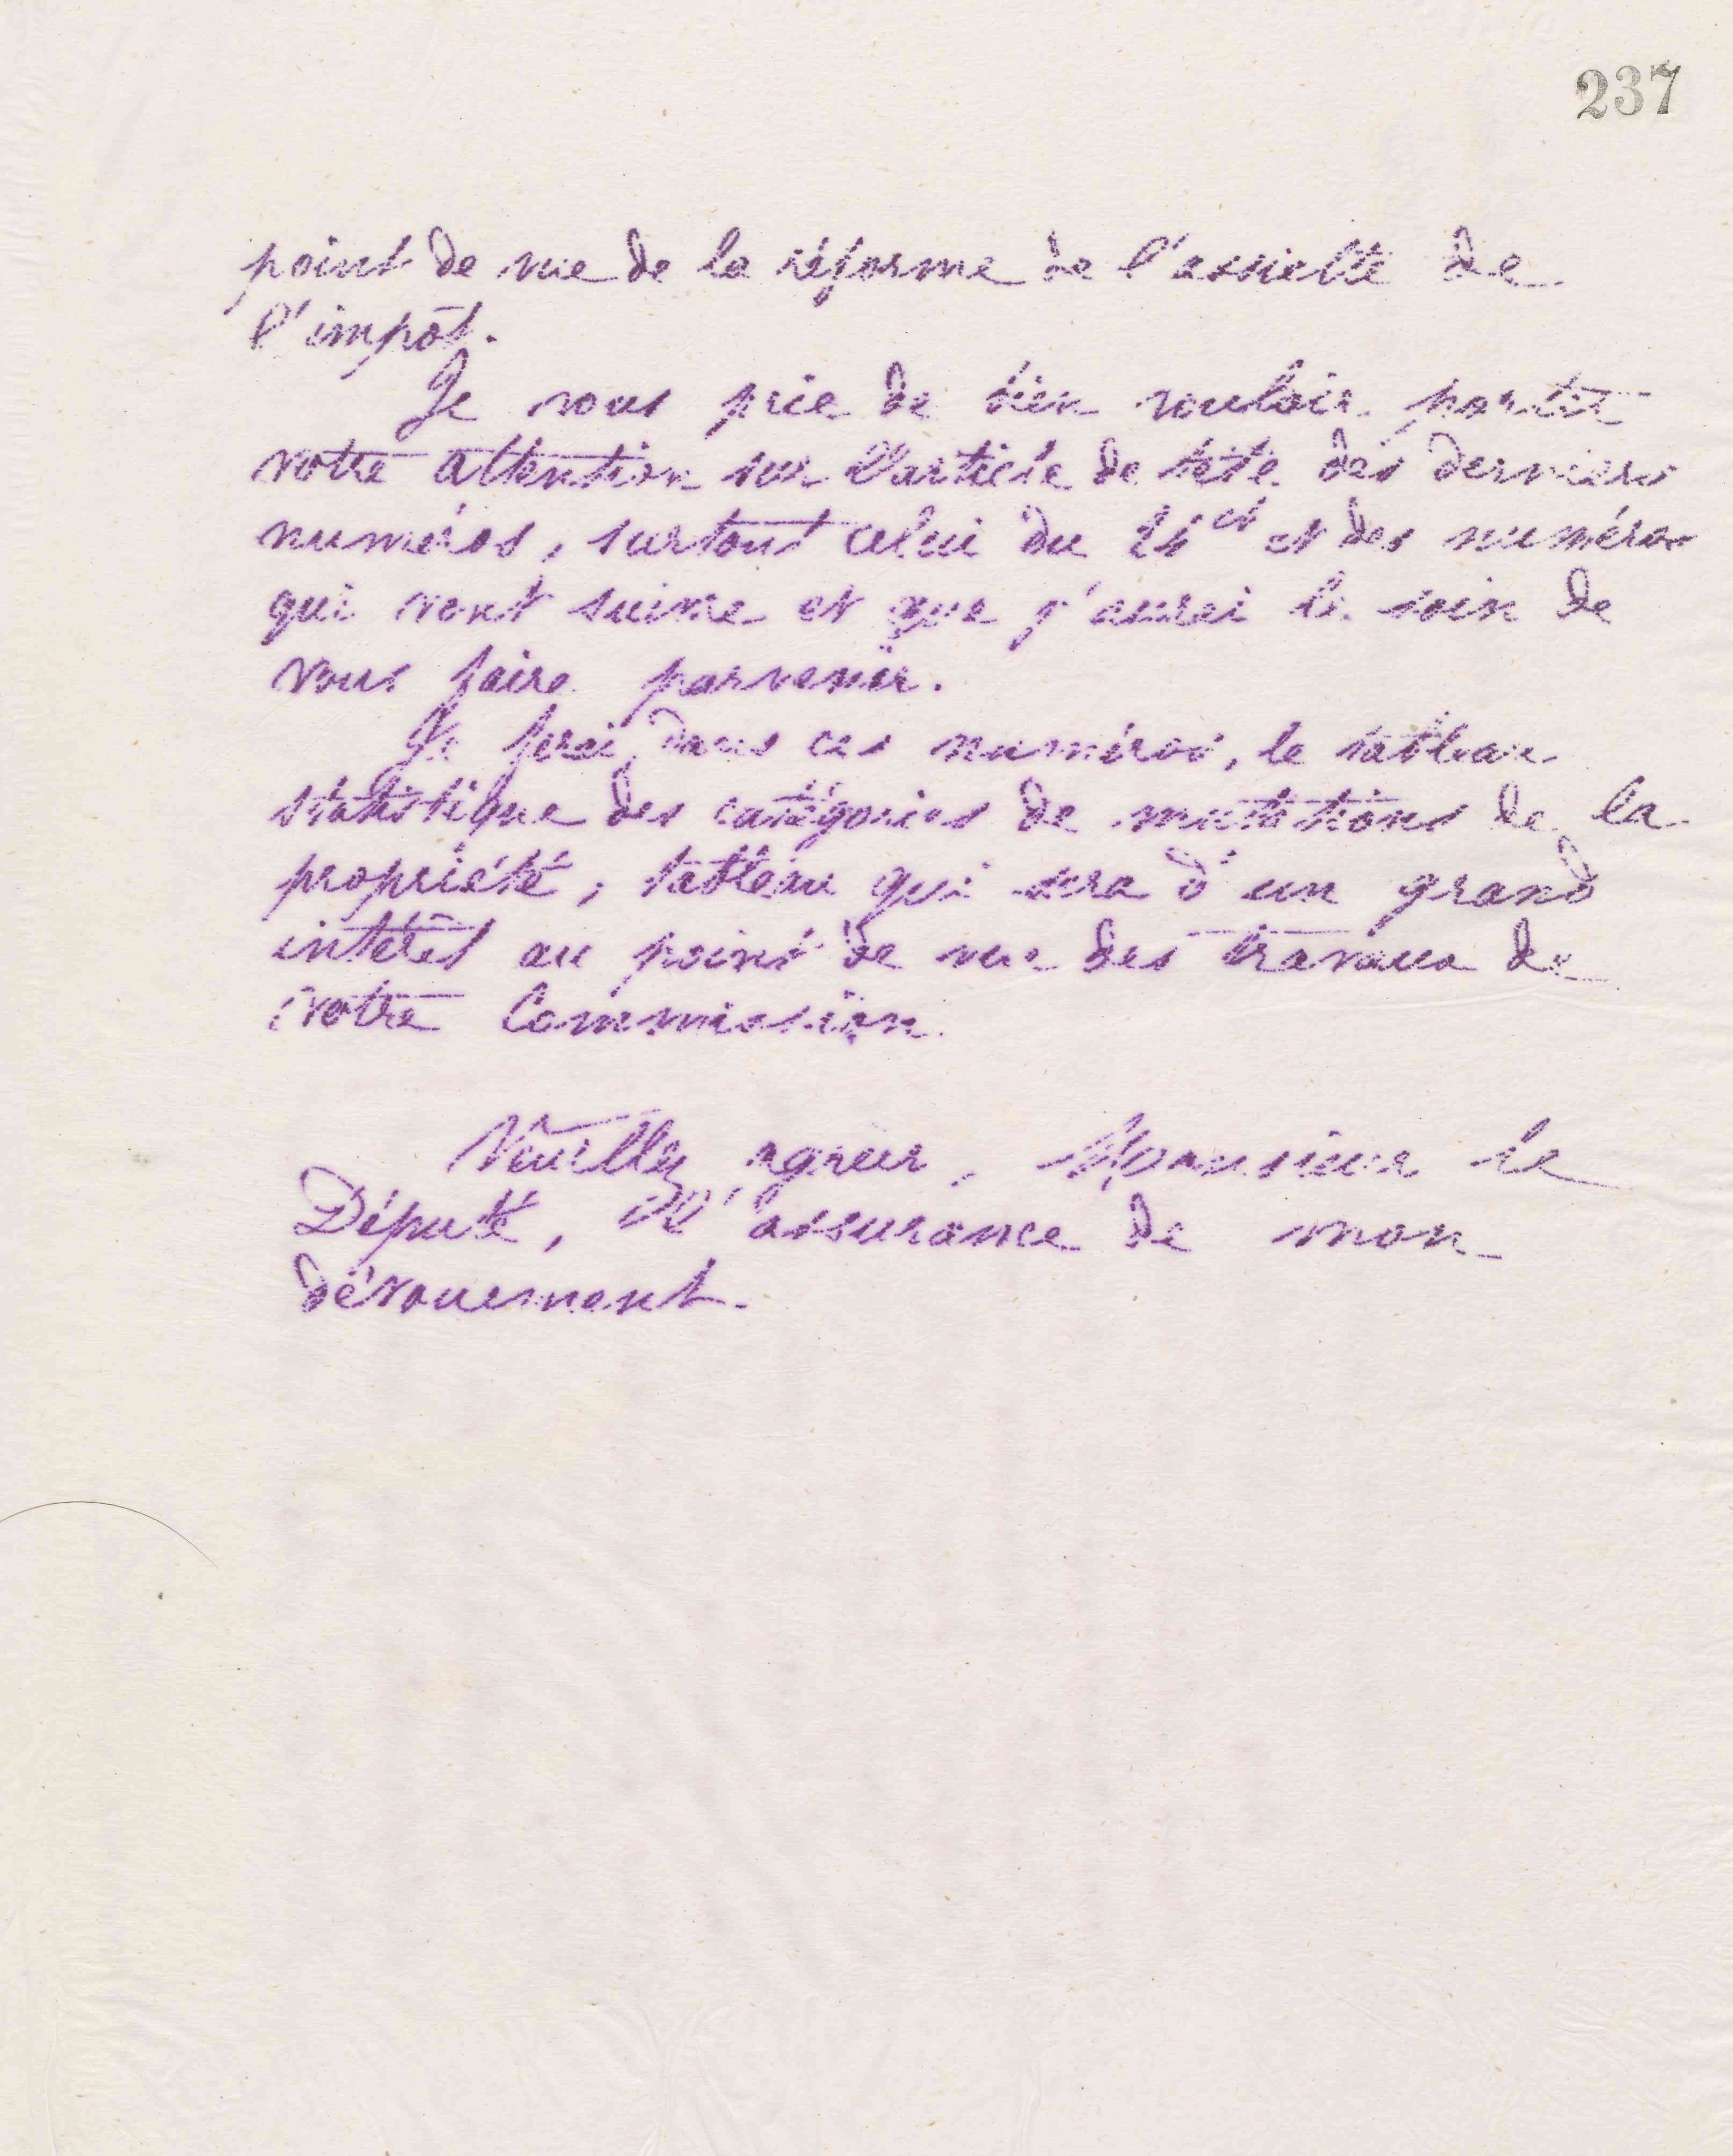 237
point de vue de la réforme de l'assiette de
l'impôt.
Je vous prie de bien vouloir porter
votre attention sur l'article de tête des derniers
numéros, surtout celui du 24 ct et des numéros
qui vont suivre et que j'aurai le soin de
vous faire parvenir.
Je ferai, dans ces numéros, le tableau
statistique des catégories de mutations de la
propriété, tableau qui sera d'un grand
intérêt au point de vue des travaux de
votre Commission.
Veuillez agréer, Monsieur le
Député, l'assurance de mon
dévouement.